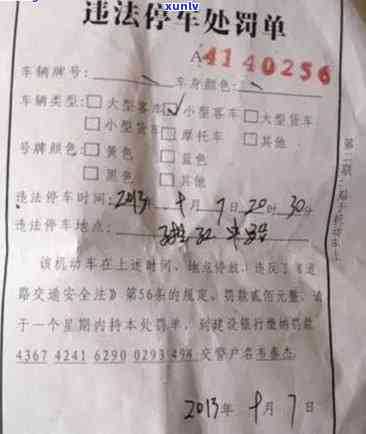 xunlv
违法停车处罚单
A4140256
车辆牌号： 车身颜色：
车辆类型：□大型客车 ☑小型客车 □大型货车
□小型货车 □摩托车 □其他
号牌颜色：□黄色 □蓝色
□黑色 □其他
违法停车时间：2013年 十月 7日 20时 30分
违法停车地点：
该机动车在上述时间、地点停放，违反了《道
路交通安全法》第56条的规定。罚款贰佰元整。请
于一个星期内持本处罚单，到建设银行缴纳罚款
4367 4241 6290 0293 498 交警户名韦泰杰
2013年 十月 7日
第二联 贴于机动车上